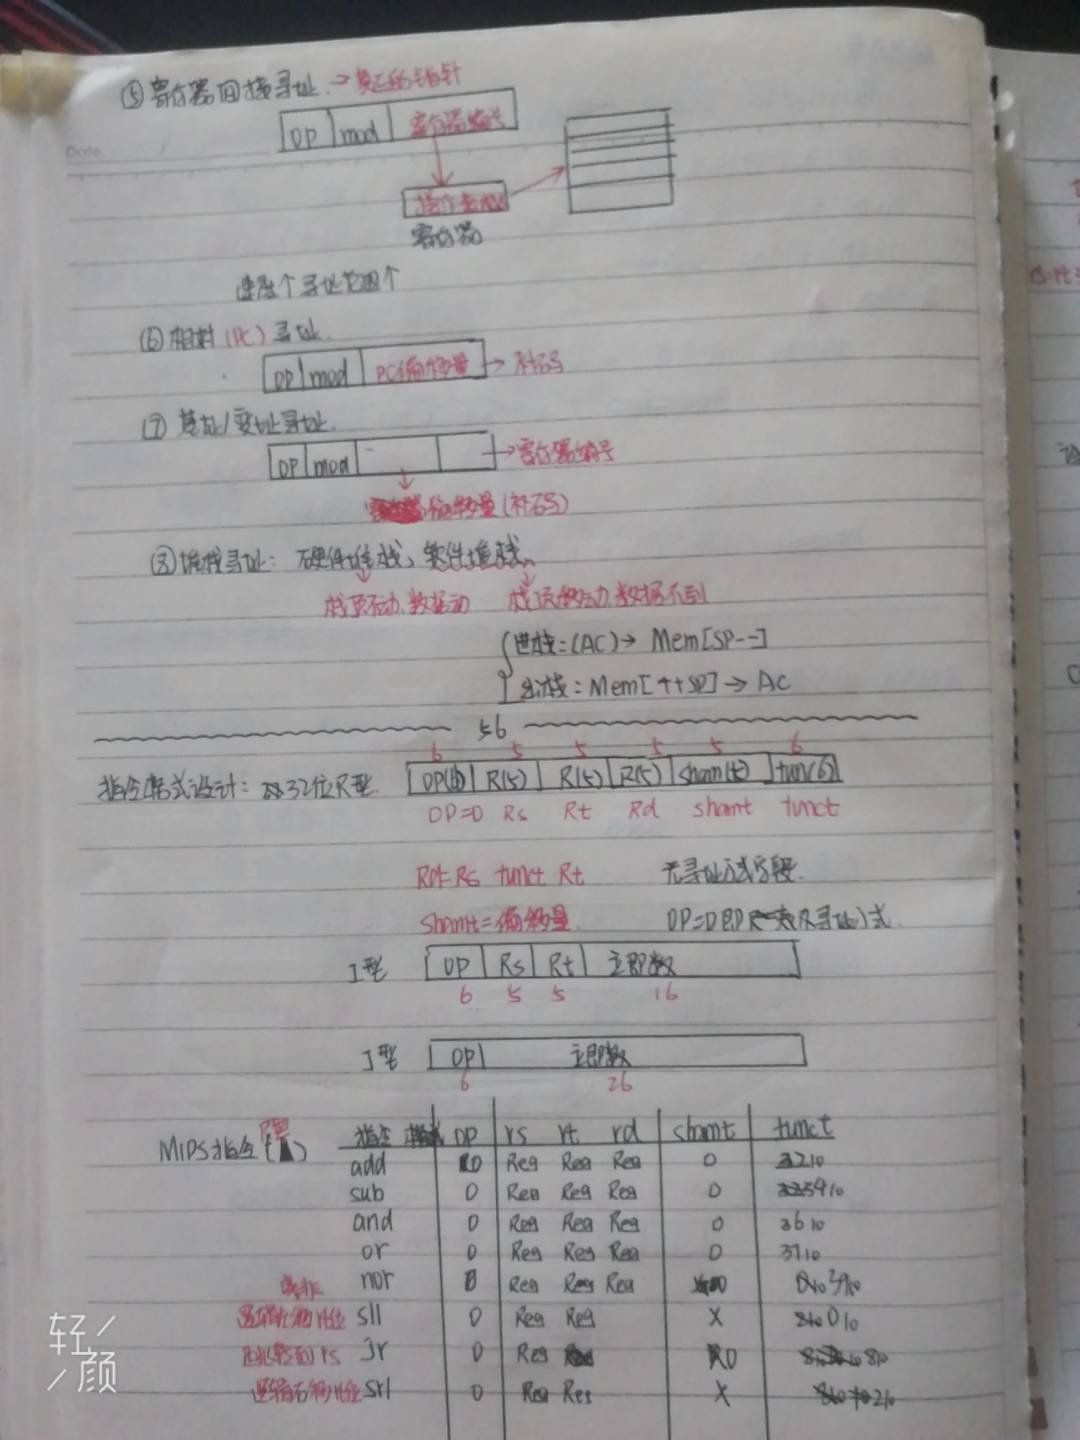 ⑤寄存器间接寻址 → 真正的指针
OP mod 寄存器编号
Date
操作数地址
寄存器
⑥相对(PC)寻址
OP mod PC偏移量 → 补码
⑦基址/变址寻址
OP mod → 寄存器编号
偏移量(补码)
⑧堆栈寻址: 硬件堆栈, 软件堆栈
栈顶不动、数据动 栈顶移动、数据不动
进栈:(AC)→ Mem[SP--]
出栈:Mem[++SP] → AC
56
6 5 5 5 5 6
指令格式设计: 32位R型 OP(6) R(5) R(5) R(5) sham(5) fun(6)
OP=0 Rs Rt Rd shamt funct
Rd=Rs funct Rt 无寻址方式字段.
shamt=偏移量. OP=0即R
I型 OP Rs Rt 立即数
6 5 5 16
J型 OP 立即数
6 26
MIPS指令(R型) 指令 OP rs rt rd shamt funct
add 0 Reg Reg Reg 0 3210
sub 0 Reg Reg Reg 0 3410
and 0 Reg Reg Reg 0 3610
or 0 Reg Reg Reg 0 3710
或非 nor 0 Reg Reg Reg 0 3910
逻辑左移 sll 0 Reg Reg X 010
跳转到rs Jr 0 Reg 0 810
逻辑右移 srl 0 Reg Res X 210
轻颜